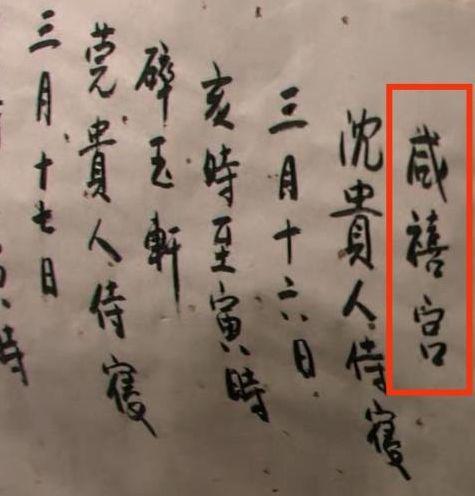 咸禧宫
沈貴人侍寝
三月十六日
亥時至寅時
碎玉軒
莞貴人侍寝
三月十七日
寅時